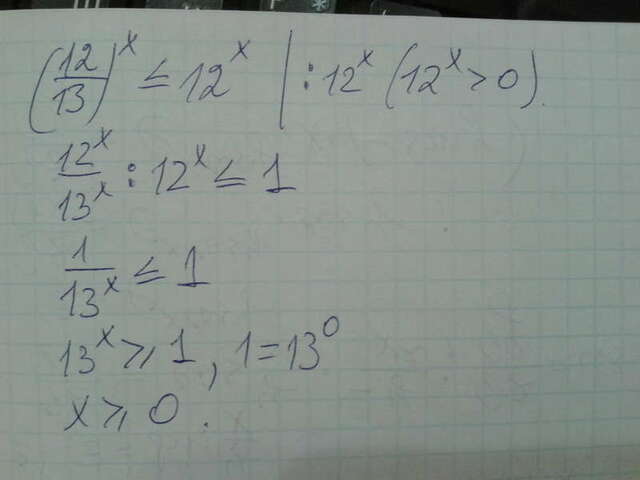 (12/13)^x ≤ 12^x | : 12^x (12^x > 0).
12^x/13^x : 12^x ≤ 1
1/13^x ≤ 1
13^x ≥ 1, 1 = 13^0
x ≥ 0.